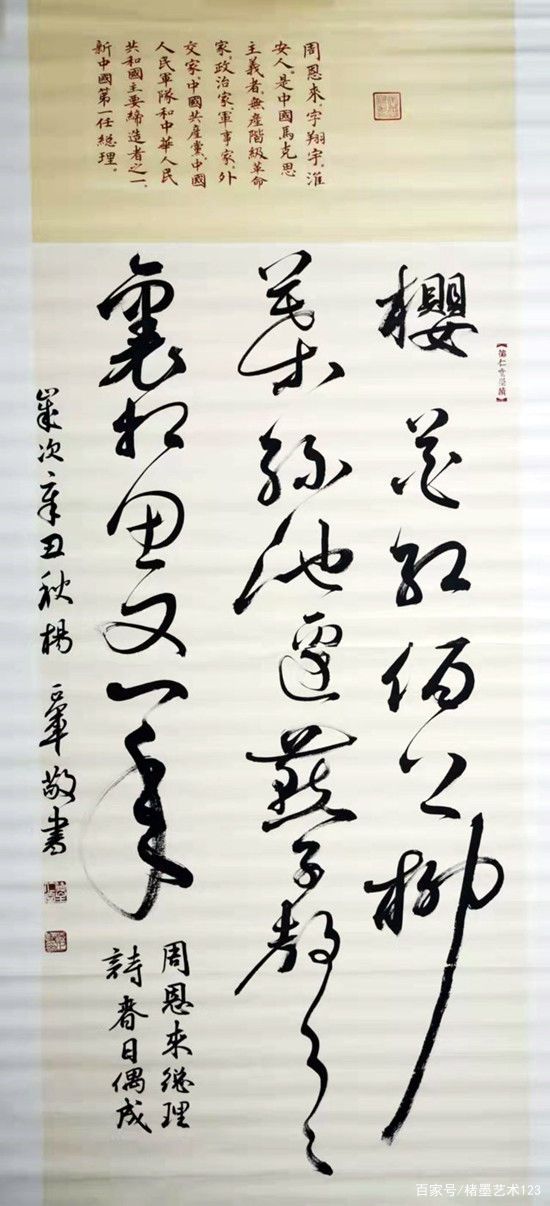 周恩來,字翔宇,淮
安人,是中國馬克思
主義者,無產階級革命
家,政治家,軍事家,外
交家,中國共產黨、中國
人民軍隊和中華人民
共和國主要締造者之一,
新中國第一任總理。
櫻花紅陌上柳
葉綠池邊燕子聲々
裏相思又一年
周恩來總理
詩春日偶成
歲次辛丑秋楊軍敬書
百家号/楮墨艺术123